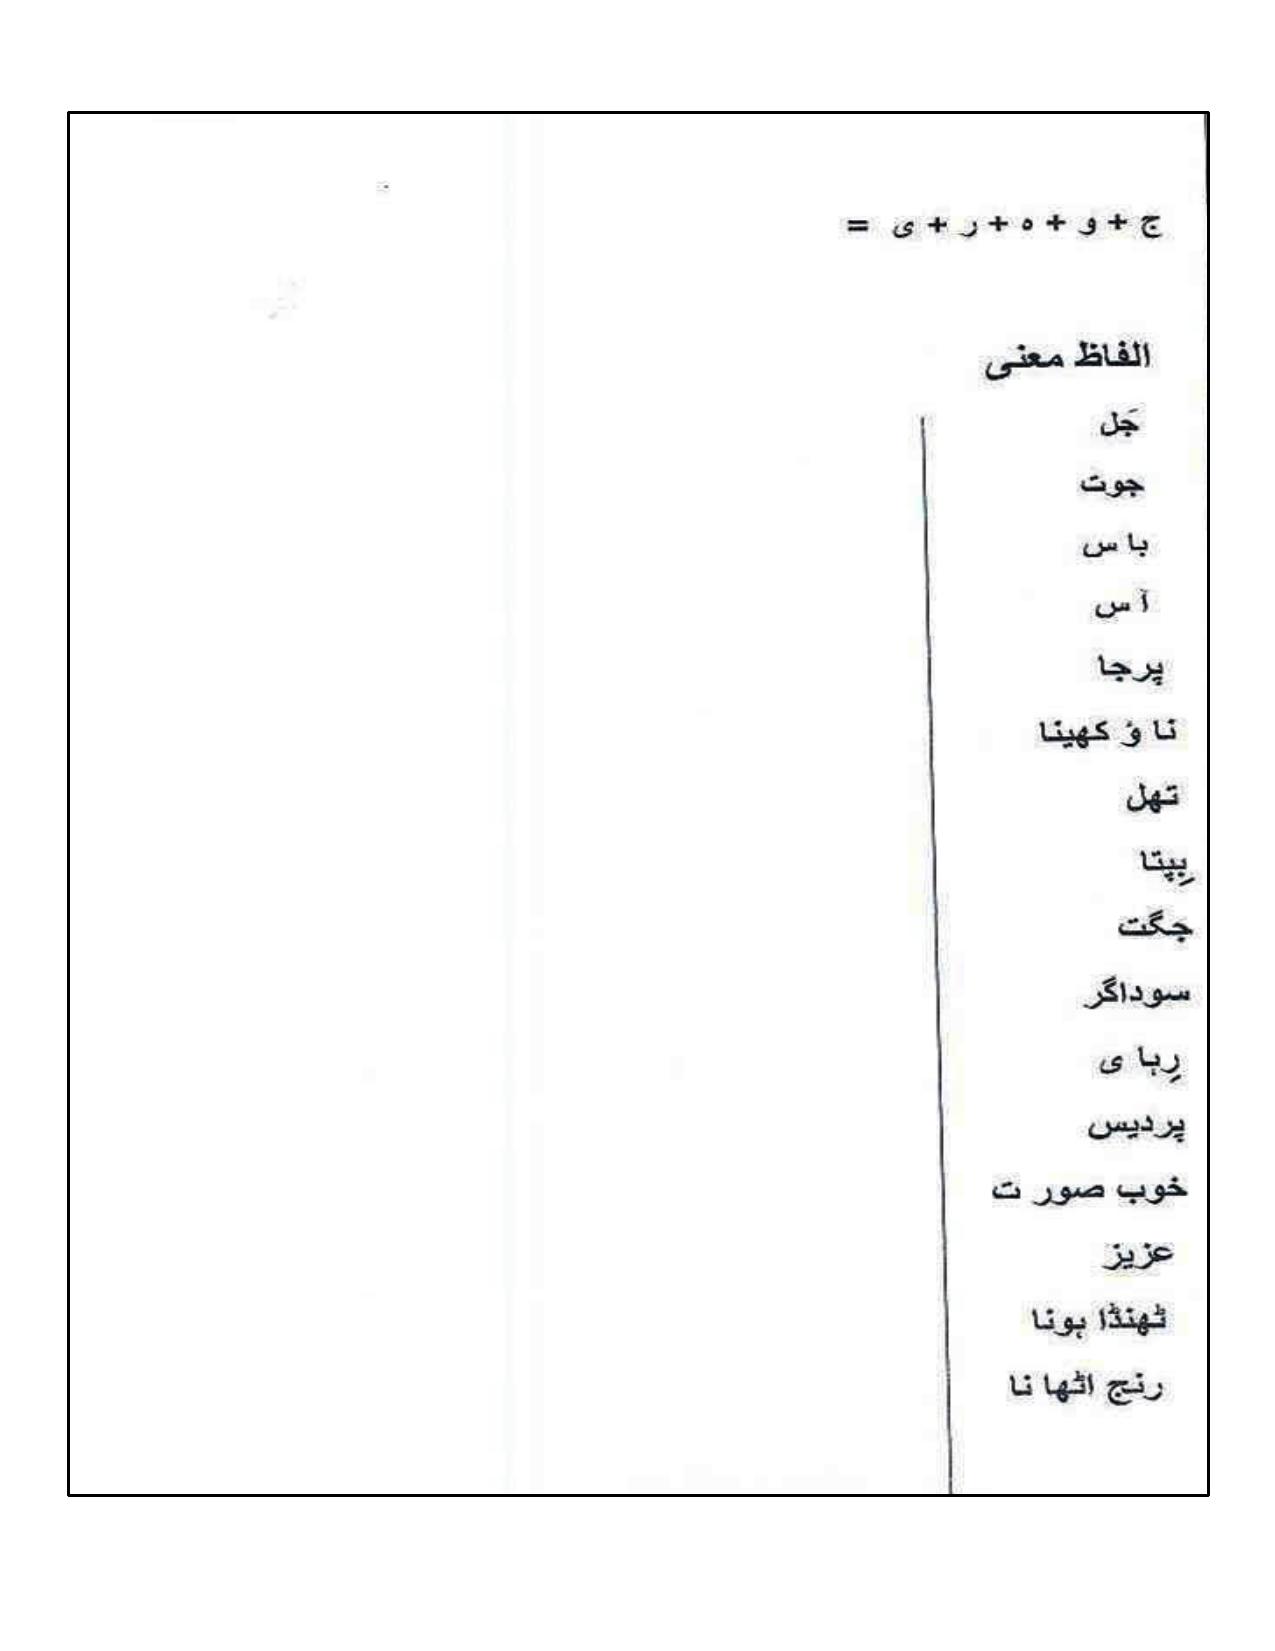 ج + و + ه + ر + ی =
الفاظ معنی
جَل
جوت
با س
آ س
پرجا
نا ؤ کھینا
تھل
بِپتا
جگت
سوداگر
رِہا ی
پردیس
خوب صور ت
عزیز
ٹھنڈا ہونا
رنج اٹھا نا